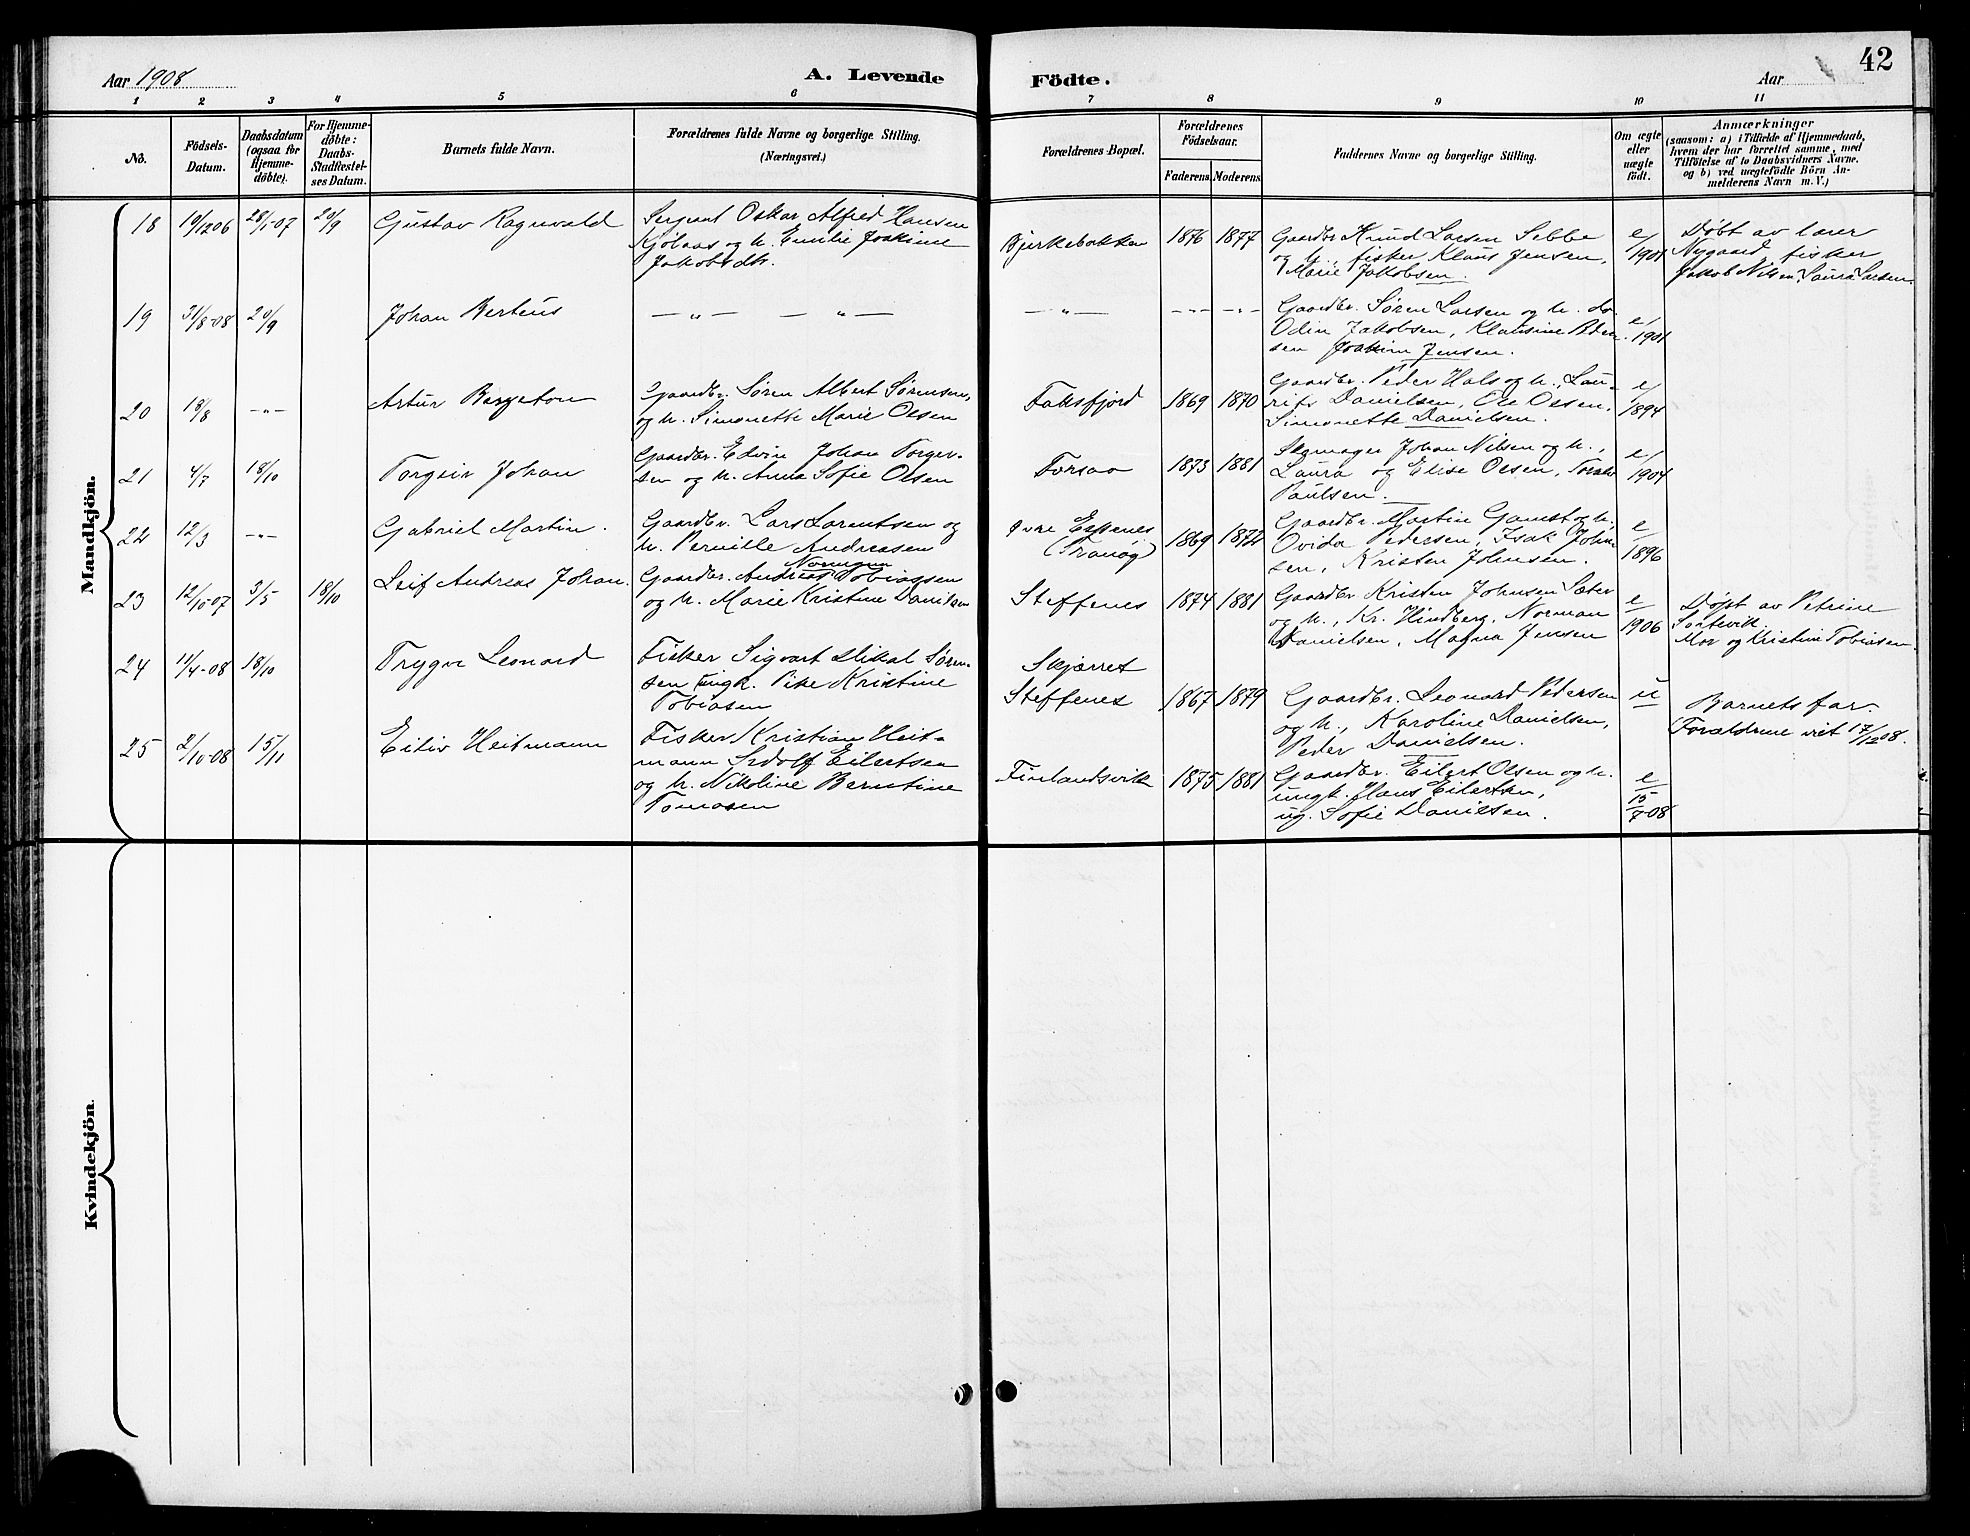 42
Aar 1908
A. Levende
Födte.
Aar
1 2 3 4 5 6 7 8 9 10 11
No.
Födsels-
Datum.
Daabsdatum
(ogsaa for
Hjemme-
døbte).
For Hjemme-
døbte:
Daabs-
Stadfæstel-
ses Datum.
Barnets fulde Navn.
Forældrenes fulde Navne og borgerlige Stilling.
(Næringsvei.)
Forældrenes Bopæl.
Forældrenes
Födselsaar.
Faderens
Moderens
Faddernes Navne og borgerlige Stilling.
Om ægte
eller
uægte
født.
Anmærkninger
(saasom: a) i Tilfælde af Hjemmedaab,
hvem der har forrettet samme, med
Tilföielse af to Daabsvidners Navne.
og b) ved uægtefödte Börn An-
melderens Navn m. V.)
Mandkjön.
18
19/12 06
28/1-07
20/9
Gustav Ragnvald
Sergeant Oskar Alfred Hansen
Kjölaas og h. Emilie Joakime
Jakobsdtr.
Bjerkebakken
1876
1877
Gaardbr. Knud Larsen Sebbe
og h., fisker Klaus Jensen,
Marie Jakobsen.
e/
1901
Døbt av lærer
Nygaard, fisker
Jakob Nilsen, Laura Larsen.
19
31/8-08
20/9
Johan Berteus
— „ — — „ —
— „ —
— „ —
— „ —
Gaardbr. Søren Larsen og h. do
Odin Jakobsen, Klausine
sen Joakim Jensen.
e/
1901
20
18/8
— „ —
Artur Bargeton
Gaardbr. Søren Albert Sørensen,
og h. Simonette Marie Olsen
Faksfjord
1869
1870
Gaardbr. Peder Hals og h., Lau-
rits Danielsen, Ole Olsen,
Simonette Danielsen.
e/
1894
21
4/7
18/10
Torgeir Johan
Gaardbr. Edvin Johan Torger-
sen og h. Anna Sofie Olsen
Forsaa
1873
1881
Skomager Johan Nilsen og h.,
Laura og Elise Olsen,
Paulsen.
e/
1904
22
12/3
— „ —
Gabriel Martin.
Gaardbr. Lars Larentsen og
h. Pernille Andreasen
Øvre Espenes
(Tranøy)
1869
1872
Gaardbr. Martin Gamst og h.,
Ovida Pedersen, Isak Johan
sen, Kristen Johnsen.
e/
1896
23
12/10-07
3/5
18/10
Leif Andreas Johan.
Normann
Gaardbr. Andreas Tobiassen
og h. Marie Kristine Danielsen
Steffenes
1874
1881
Gaardbr. Kristen Johnsen Sæter
og h., Kr. Hindberg, Norman
Danielsen, Magna Jensen
e/
1906
Døpt av Petrine
Sortevik.
Mor og Kristine Tobiasen.
24
11/4-08
18/10
Trygve Leonard
Fisker Sigvart Mikal Søren-
sen ungk. Pike Kristine
Tobiasen
Skjærret
Steffenes
1867
1879
Gaardbr. Leonard Pedersen
og h., Karoline Danielsen,
Peder Danielsen.
u
Barnets far.
Forældrene viet 17/12 08.
25
2/10-08
15/11
Eiliv Heitmann
Fisker Kristian Heit-
mann Srdolf Eilertsen
og h. Nikoline Berntine
Tomasen
Finlandsvik
1875
1881
Gaardbr. Eilert Olsen og h.
ungk. Hans Eilertsen,
ug. Sofie Danielsen.
e/
15/7-08
Kvindekjön.